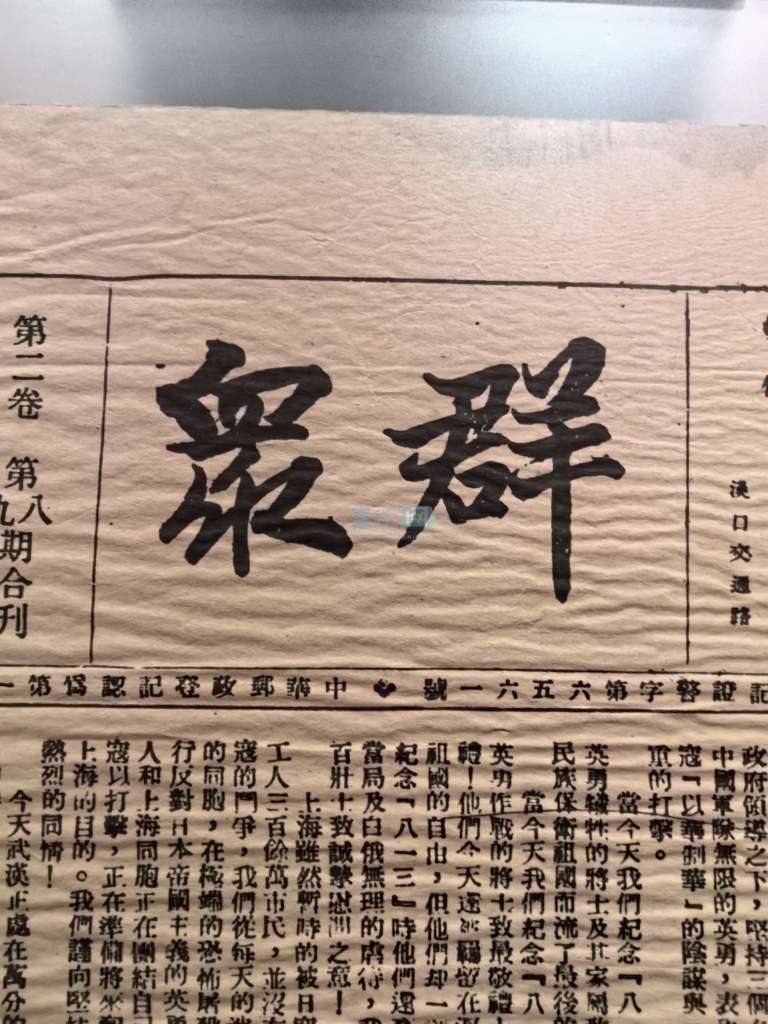 群衆
漢口交通路
第二卷
第八
九
期合刊
記證警字第六五六一號
中華郵政登記認爲第一
政府領導之下,堅持三個
中國軍隊無限的英勇,表
寇「以華制華」的陰謀與
重的打擊。
當今天我們紀念『八
英勇犧牲的將士及其家屬致
民族保衛祖國而流了最後的
當今天我們紀念『八
英勇作戰的將士致最敬禮!
禮!他們今天還羈留在
祖國的自由,但他們却一
紀念『八一三』時他們還
當局及白俄無理的虐待,我
百壯士致誠摯慰問之意!
上海雖然暫時的被日寇
工人三百餘萬市民,並沒有
寇的鬥爭,我們從每天的
的同胞,在極端的恐怖屠殺
行反對日本帝國主義的英勇
人和上海同胞正在團結自己
寇以打擊,正在準備將來
上海的目的。我們謹向堅
熱烈的同情!
今天武漢正處在萬分的